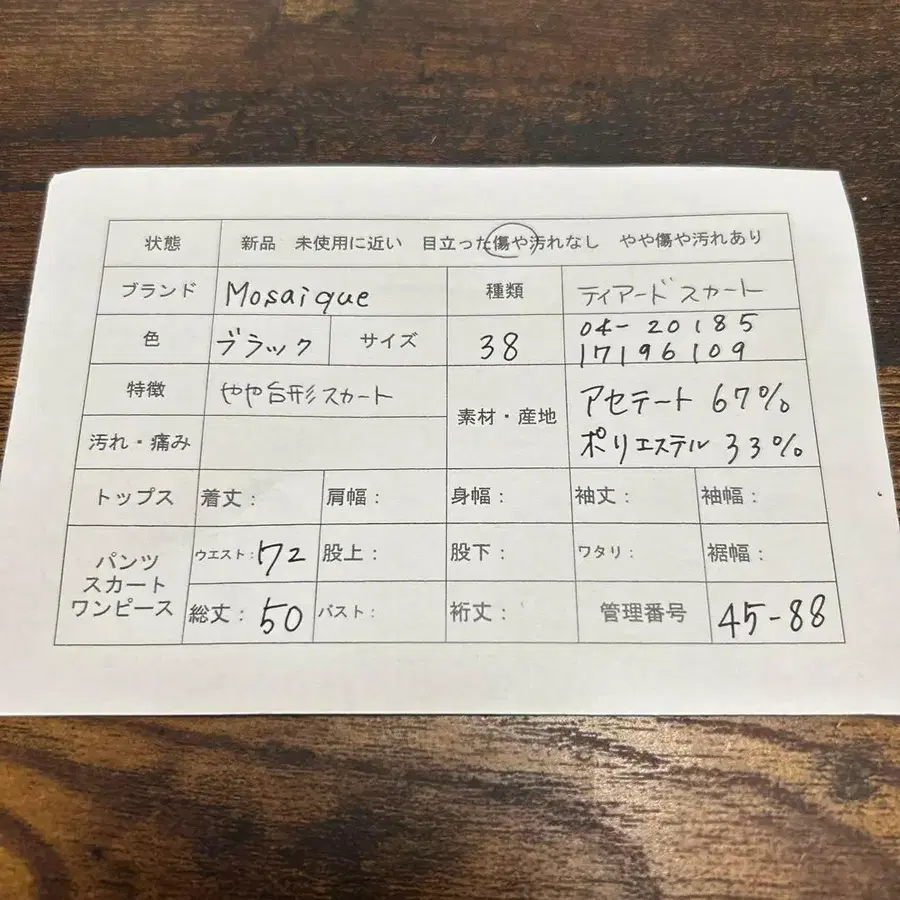 状態 新品 未使用に近い 目立った傷や汚れなし やや傷や汚れあり
ブランド Mosaique 種類 ティアードスカート
色 ブラック サイズ 38 04-20185
17196109
特徴 やや台形スカート 素材・産地 アセテート 67%
汚れ・痛み ポリエステル 33%
トップス 着丈: 肩幅: 身幅: 袖丈: 袖幅:
パンツ スカート ワンピース ウエスト:72 股上: 股下: ワタリ: 裾幅:
総丈:50 バスト: 裄丈: 管理番号 45-88